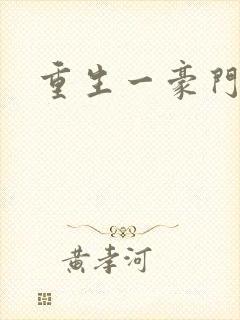 重生一豪門
黃孝河